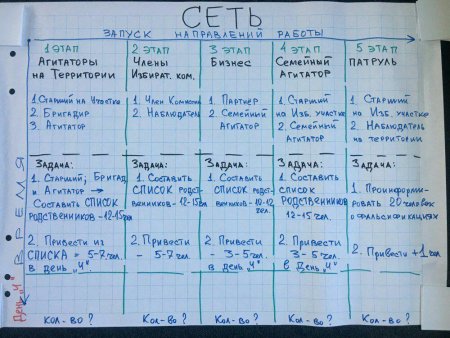 СЕТЬ
ЗАПУСК НАПРАВЛЕНИЙ РАБОТЫ
1 ЭТАП
Агитаторы
на Территории
1. Старший на Участке
2. Бригадир
3. Агитатор
Задача:
1. Старший, Бригад
и Агитатор →
Составить СПИСОК
РОДСТВЕННИКОВ - 12-15 чел.
2. Привести из
СПИСКА = 5-7 чел.
в день „Ч"
Кол-во?
2 ЭТАП
Члены
Избират. ком.
1. Член Комиссии
2. Наблюдатель
Задача:
1. Составить
СПИСОК РОДСТ-
венников - 12-15
2. Привести
- 5-7 чел.
Кол-во?
3 ЭТАП
Бизнес
1. Партнёр
2. Семейный
Агитатор
Задача:
1. Составить
СПИСОК РОДСТ-
венников - 10-12
чел.
2. Привести
- 3-5 чел.
в День „Ч"
Кол-во?
4 ЭТАП
Семейный
Агитатор
1. Старший
на Изб. участке
2. Семейный
Агитатор
Задача:
1. Составить
СПИСОК
РОДСТВЕННИКОВ
12-15 чел.
2. Привести
3-5 чел.
в День „Ч"
Кол-во?
5 ЭТАП
ПАТРУЛЬ
1. Старший
на Изб. участке
2. Наблюдатель
на территории
Задача:
1. Проинформи-
ровать 20 человек
о фальсификациях
2. Привести +1 чел.
Кол-во?
ВРЕМЯ
День „Ч"